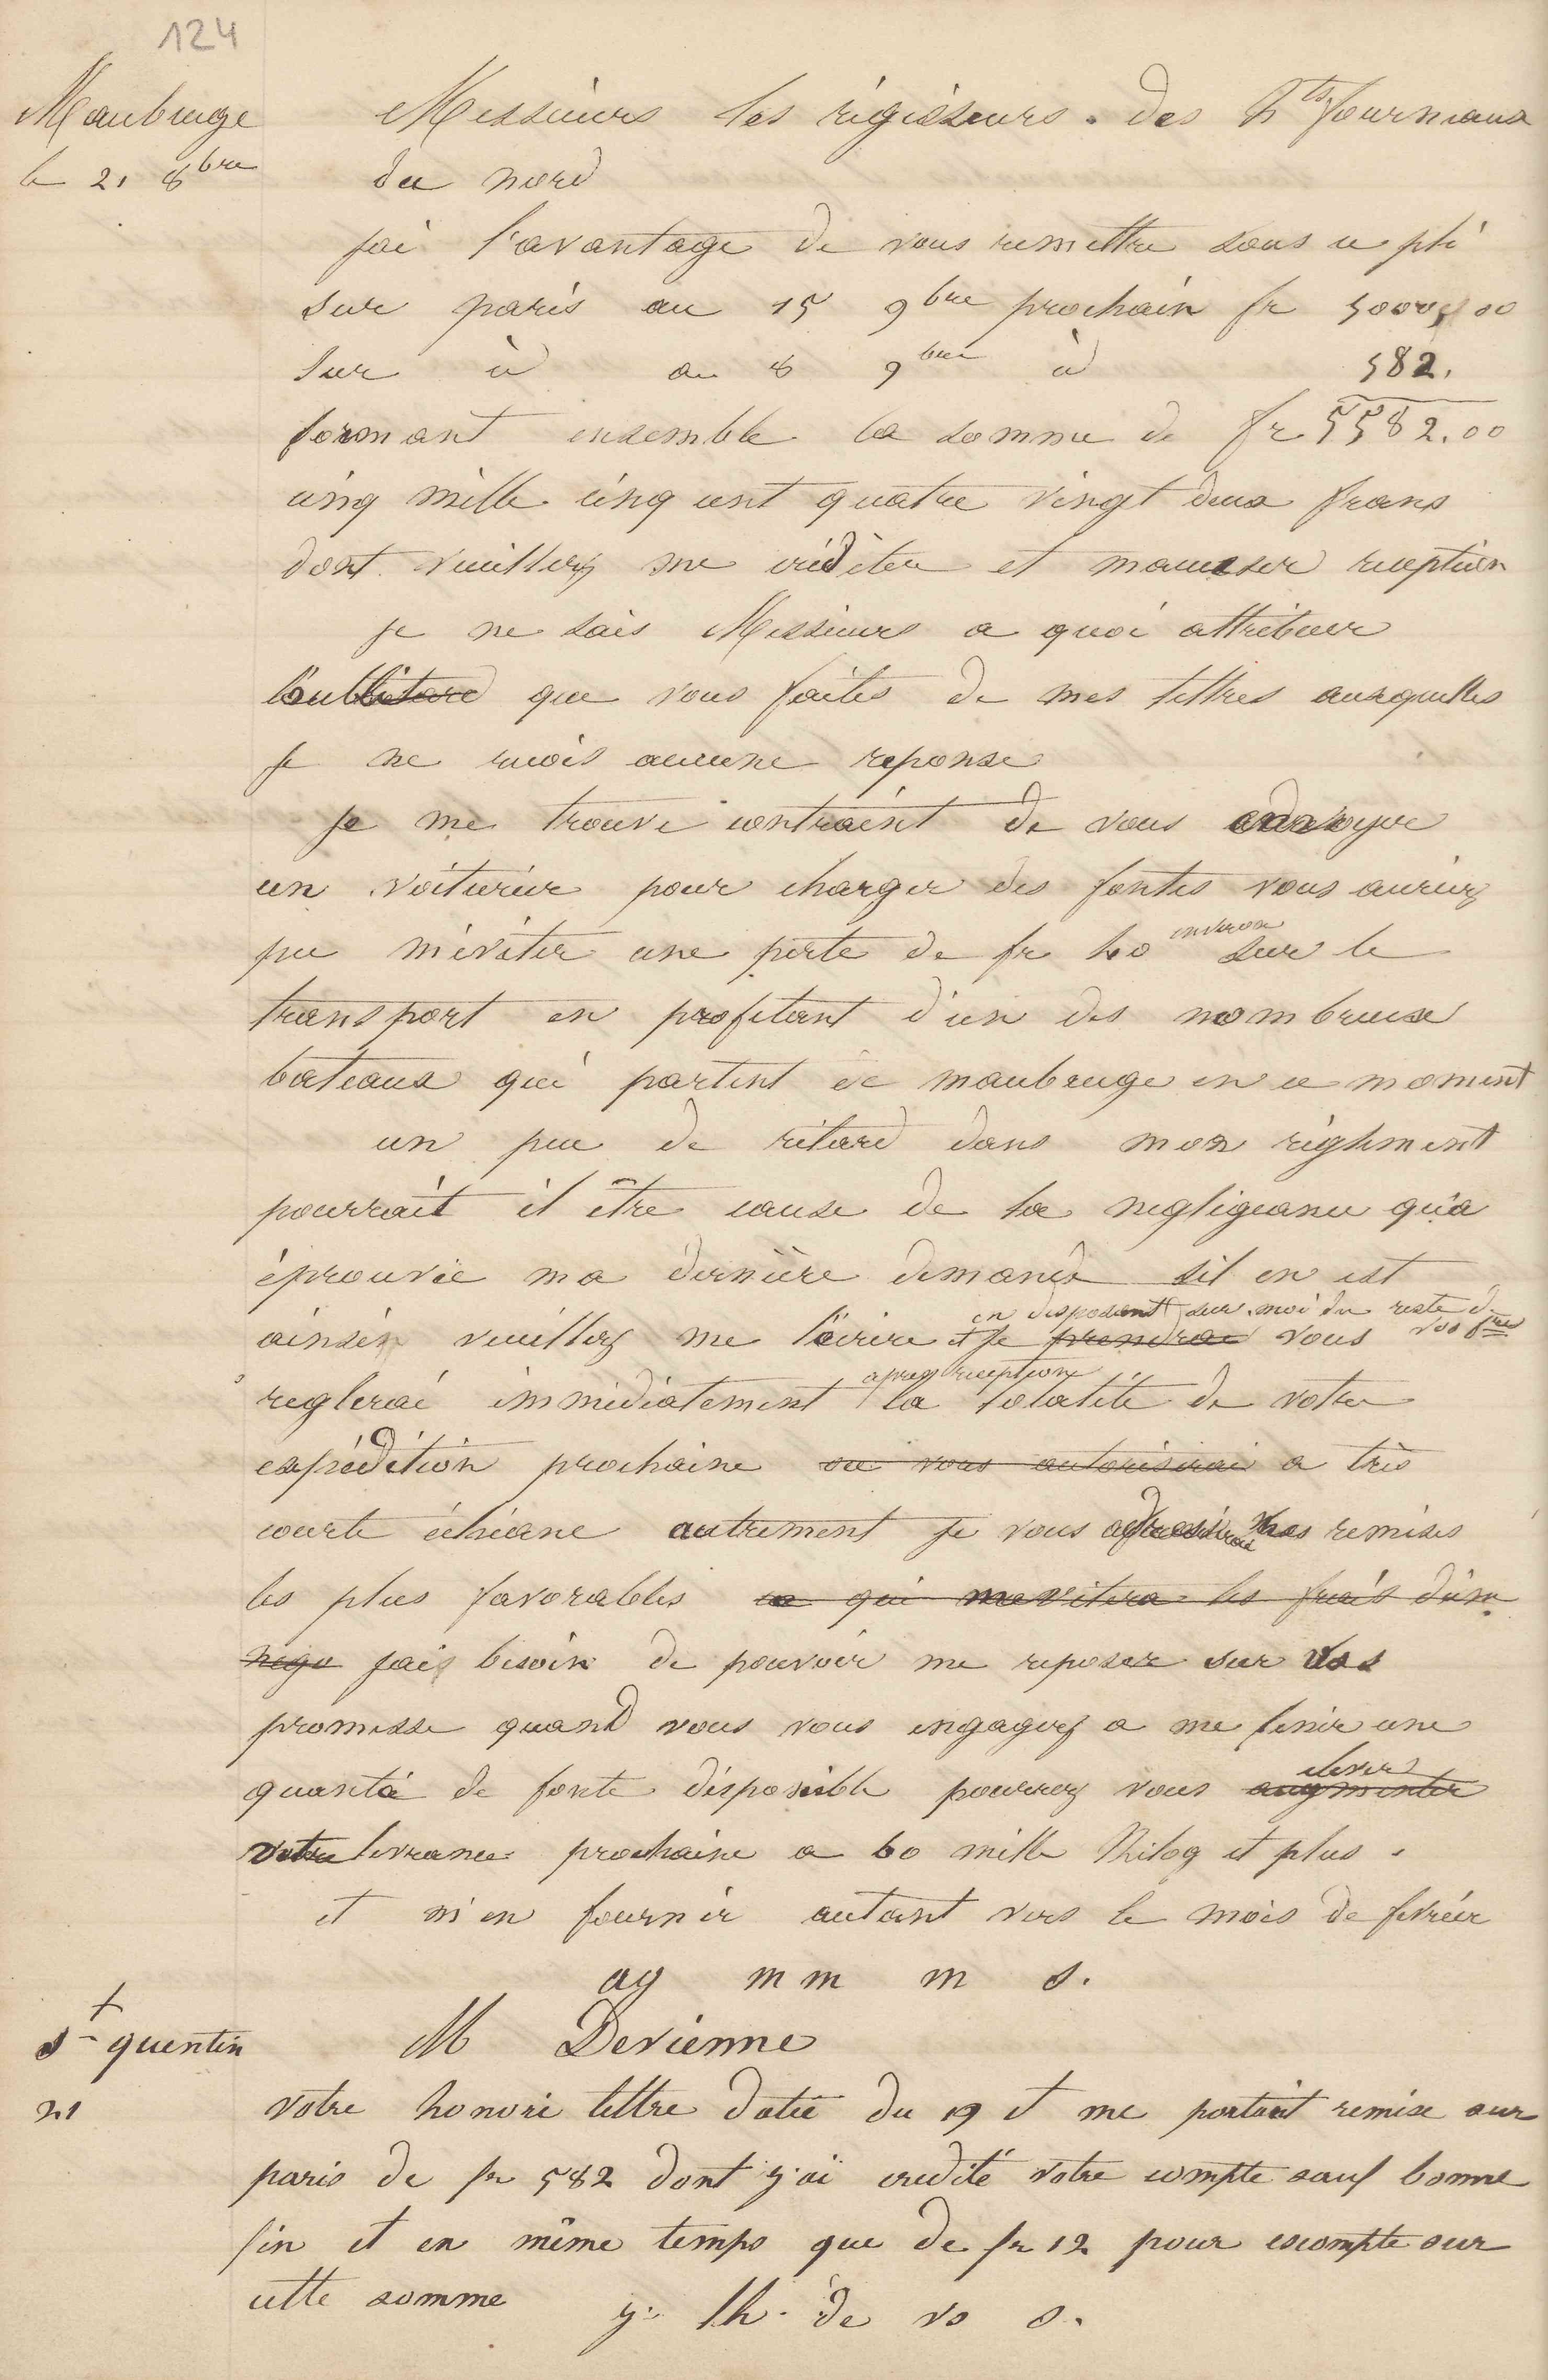 124
Maubeuge
le 21 8bre
Messieurs les régisseurs des hts fourneaux
du nord
jai l'avantage de vous remettre sous ce pli
sur paris au 15 9bre prochain fr 5000,00
sur d au 8 9bre d 582.
formant ensemble la somme de fr 5582.00
cinq mille cinq cent quatre vingt deux francs
dont veuillez me créditer et maccuser reception
je ne sais Messieurs a quoi attribuer
l'oubli que vous faites de mes lettres auxquelles
je ne recois aucune reponse
Je me trouve contraint de vous
un voiturier pour charger des fontes vous auriez
pu m'éviter une perte de fr environ sur le
transport en profitant d'un des nombreux
bateaux qui partent de maubeuge en ce moment
un peu de retard dans mon règlement
pourrait il être cause de la negligeance qu'a
éprouvée ma dernière demande sil en est
en disposant sur moi du reste de
ainsin veuillez me l'écrire et je prendrai vous vos fres
après reception
reglerai immédiatement la totalité de votre
expédition prochaine ou vous autoriserai a très
courte échéance autrement je vous adresserai mes remises
les plus favorables ce qui mevitera les frais d'un
nego jais besoin de pouvoir me reposer sur vos
promesse quand vous vous engagez a me tenir une
quantié de fonte disponible pourrez vous augmenter
elever
votre livrance prochaine a 60 mille Kilog et plus.
et m'en fournir autant vers le mois de fevrier
ag m m m s.
St quentin
21
M Devienne
votre honoré lettre datée du 19 ct me portait remise sur
paris de fr 582 dont j'ai credité votre compte sauf bonne
fin et en même temps que de fr 12 pour escompte sur
cette somme j. lh. de vo s.